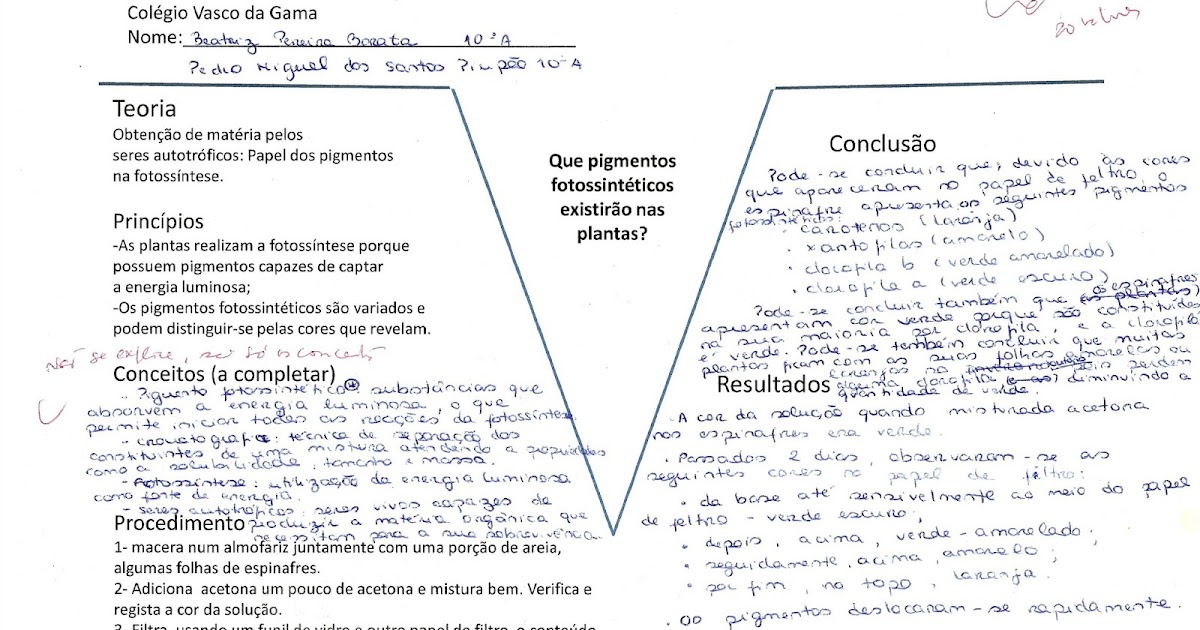 Colégio Vasco da Gama
Nome: Beatriz Pereira Barata 10ºA
Pedro Miguel dos Santos Pimpão 10ºA
20 valores
Teoria
Obtenção de matéria pelos
seres autotróficos: Papel dos pigmentos
na fotossíntese.
Princípios
-As plantas realizam a fotossíntese porque
possuem pigmentos capazes de captar
a energia luminosa;
-Os pigmentos fotossintéticos são variados e
podem distinguir-se pelas cores que revelam.
Não se explice, só os conceitos
Conceitos (a completar)
- Pigmento fotossintético substâncias que
absorvem a energia luminosa, o que
permite iniciar todas as reacções da fotossíntese.
- cromatografia: técnica de separação dos
constituintes de uma mistura atendendo a propriedades
como a solubilidade, tamanho e massa.
- Fotossíntese: utilização da energia luminosa
como fonte de energia.
- seres autotróficos: seres vivos capazes de
produzir a matéria orgânica que
necessitam para a sua sobrevivência.
Procedimento
1- macera num almofariz juntamente com uma porção de areia,
algumas folhas de espinafres.
2- Adiciona acetona um pouco de acetona e mistura bem. Verifica e
regista a cor da solução.
3- Filtra, usando um funil de vidro e outro papel de filtro, o conteúdo
Que pigmentos
fotossintéticos
existirão nas
plantas?
Conclusão
Pode-se concluir que, devido às cores
que apareceram no papel de feltro, o
espinafre apresenta os seguintes pigmentos
fotossintéticos:
• carotenos (laranja)
• xantofilas (amarelo)
• clorofila b (verde amarelado)
• clorofila a (verde escuro)
Pode-se concluir também que os espinafres (as plantas)
apresentam cor verde porque são constituídas
na sua maioria por clorofila, e a clorofila
é verde. Pode-se também concluir que muitas
plantas ficam com as suas folhas amarelas ou
laranjas no pois perdem
alguma clorofila diminuindo a
quantidade de verde.
Resultados
• A cor da solução quando misturada acetona
nos espinafres era verde.
• Passados 2 dias, observaram-se as
seguintes cores no papel de feltro:
• da base até sensivelmente ao meio do papel
de feltro - verde escuro;
• depois, acima, verde-amarelado;
• seguidamente, acima, amarelo;
• por fim, no topo, laranja.
• Os pigmentos deslocaram-se rapidamente.